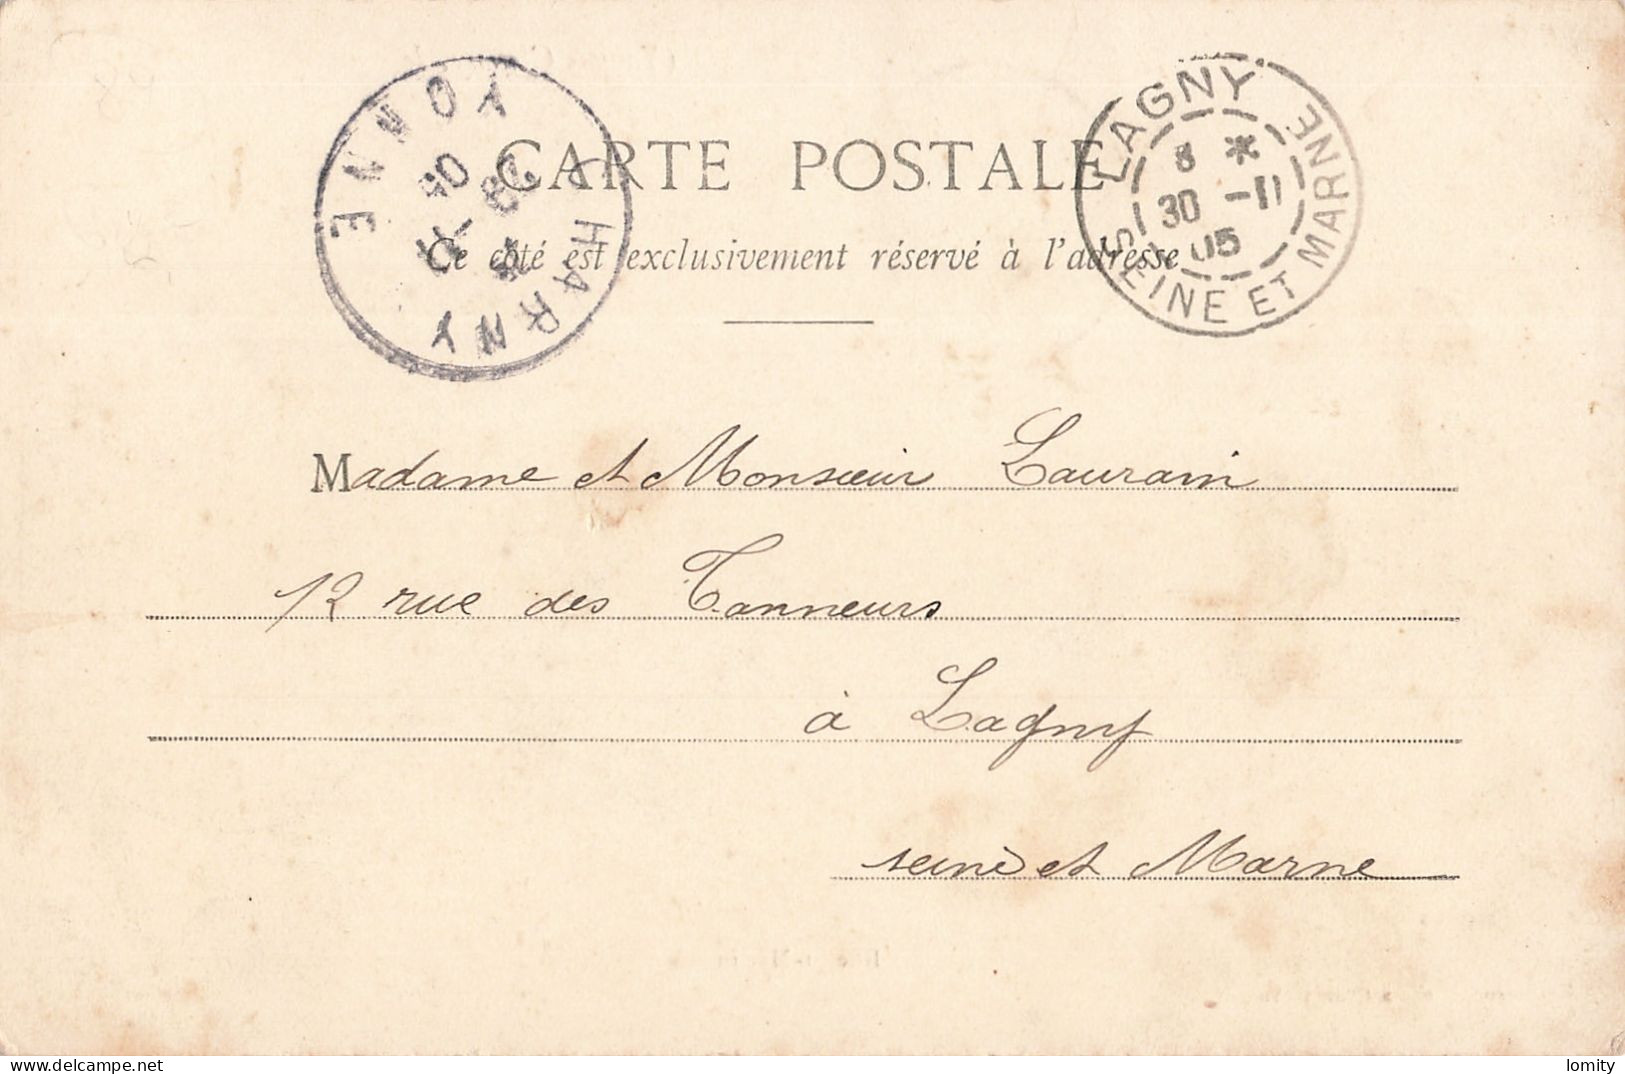 CHARNY YONNE
29 -11
05
LAGNY
SEINE ET MARNE
8 *
30 -11
05
CARTE POSTALE
Ce côté est exclusivement réservé à l'adresse
Madame et Monsieur Laurain
12 rue des Tanneurs
à Lagny
seine et Marne
lomity